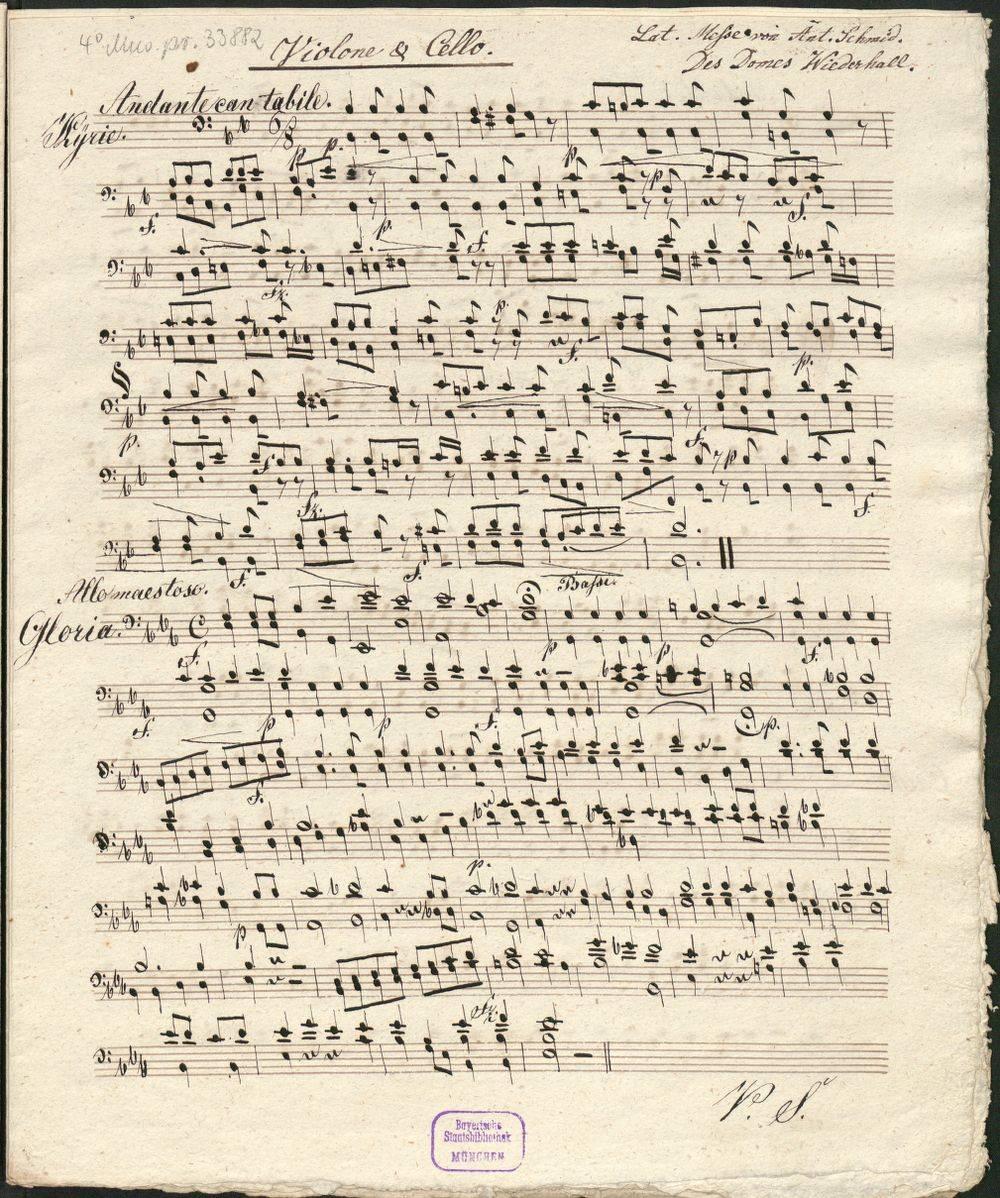 4° Mus. pr. 33882
Violone & Cello.
Lat. Messe von Ant. Schmid.
Des Domes Wiederhall.
Andante cantabile.
Kÿrie.
p. p. p
f. p. p f.
f. fz.
p. f.
p. p.
f. f. p
fz. f.
f. f.
Allo maestoso.
Basse.
Gloria.
f. p p f.
f. p p f. p.
f.
p.
p
fz.
V. S.
Bayerische
Staatsbibliothek
MÜNCHEN